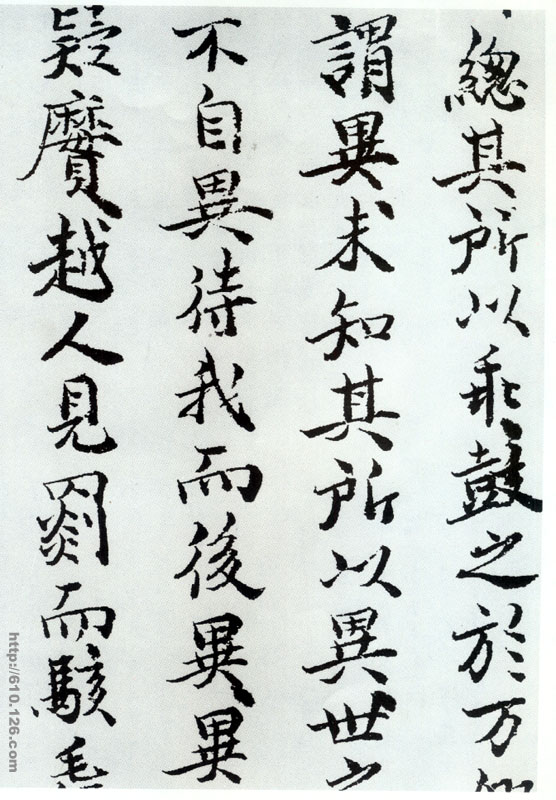 總其所以乖鼓之於万
謂異未知其所以異世
不自異待我而後異異
疑黂越人見罽而駭
http://610.126.com